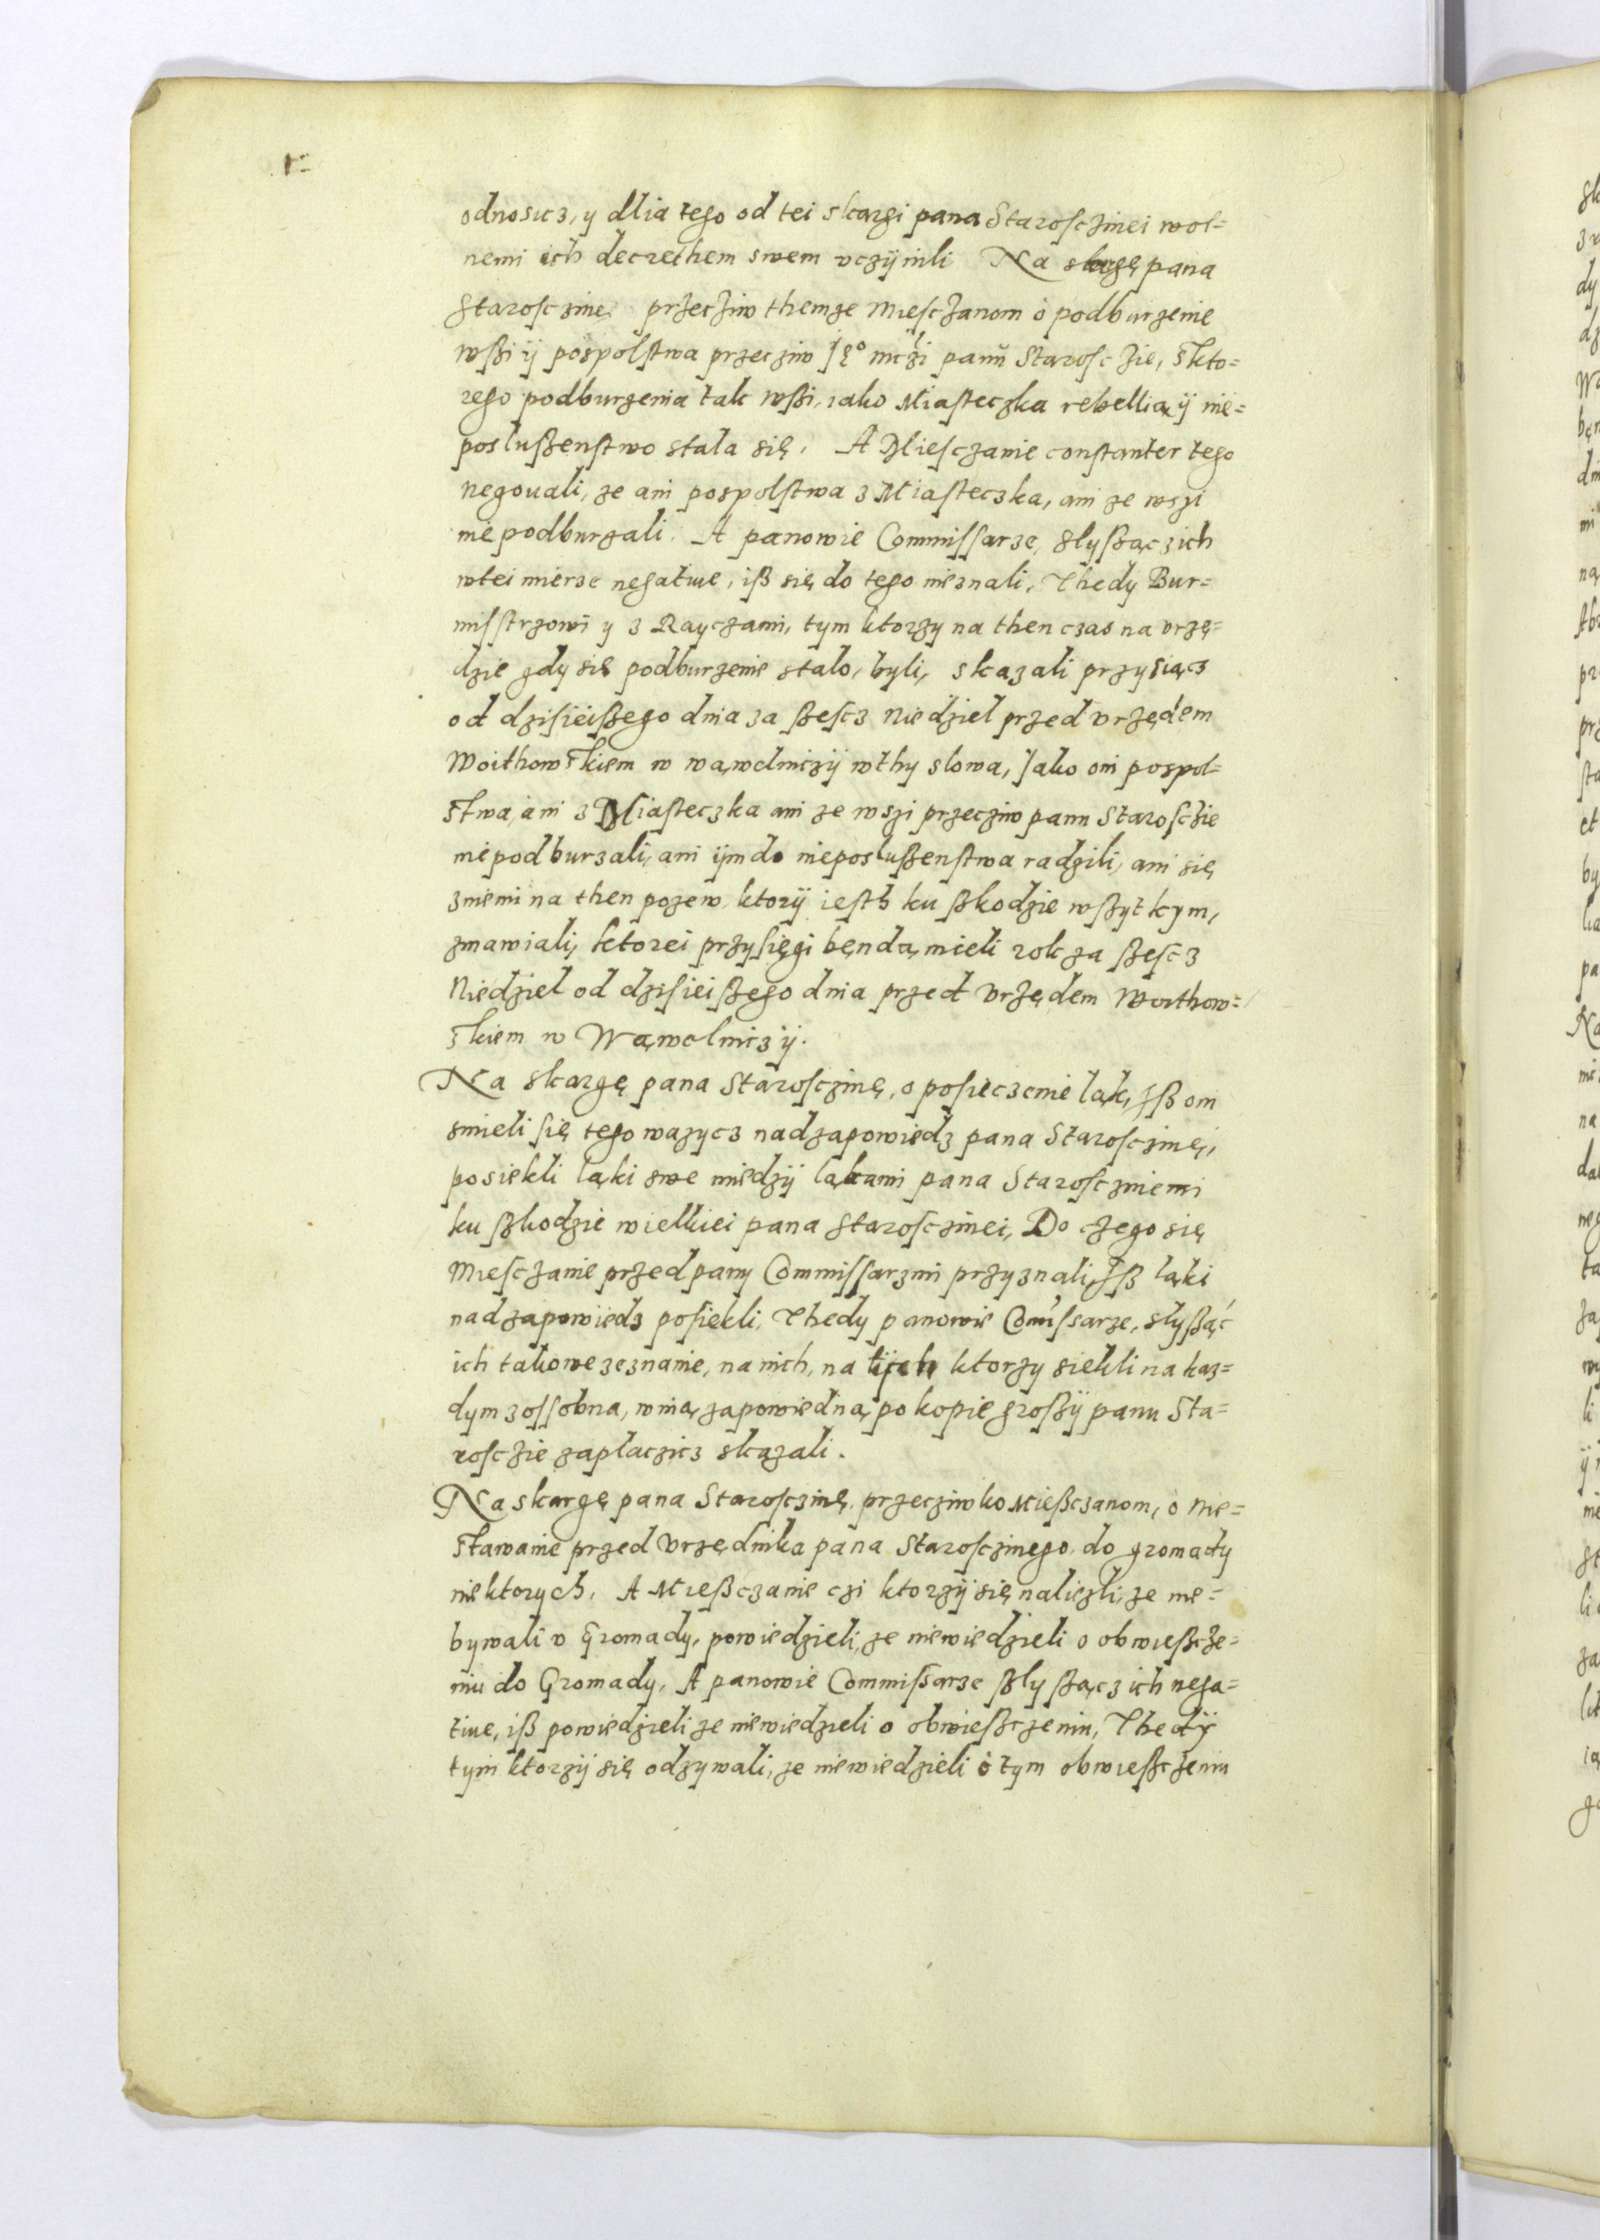 odnosicz, y dlia tego od tei skargi pana Starosczinei wol-
nemi ich decrethem swem vczijnili Na skargę pana
Starosczinę przecziw themze Miesczanom o podburzenie
wssi ij pospolstwa przecziw panu Starosczie, skto-
rego podburzenia tak wssi, iako Miasteczka rebellia ij nie-
poslussenstwo stala się. A Miesczanie constanter tego
negouali, ze ani pospolstwa z Miasteczka, ani ze wszi
nie podburzali. A panowie Commissarze, slyssącz ich
wtei mierze negatiue, iss się do tego nieznali, Thedy Bur-
misstrzowi y z Rayczami, tym ktorzy na then czas na vrzę-
dzie gdy się podburzenie stalo, byli, skazali przysiącz
od dzisieissego dnia za ssescz Niedziel przed vrzędem
Woithowskiem w wąwolniczij wthy slowa, Jako oni pospol-
stwa, ani z Miasteczka ani ze wszi przecziw panu Starosczie
niepodburzali, ani ijm do nieposlussenstwa radzili, ani się
zniemi na then pozew, ktorij iesth ku sskodzie wssytkym,
zmawiali, ktorei przysięgi bęndą mieli rok za ssescz
Niedziel od dzisieissego dnia przed vrzędem Woithow-
skiem w Wąwolniczij.
Na skargę pana Starosczinę, o posieczenie ląk, Jss oni
smieli się tego wazycz nad zapowiedz pana Starosczinę,
posiekli ląki swe miedzij ląkami pana Starosczinemi
ku sskodzie wielkiei pana Starosczinei, Do czego się
Miesczanie przed pany Commissarzmi przyznali, Jss ląki
nad zapowiedz posiekli, Thedy panowie Comissarze, slyssąc
ich takowe zeznanie, na nich, na tijch ktorzy siekli na kaz-
dym z ossobna, winą zapowiedną po kopie grossij panu Sta-
rosczie zaplaczicz skazali.
Na skargę pana Starosczinę przecziwko Miessczanom, o nie-
stawanie przed Vrzędnika pana Starosczinego do gromady
niektorych. A Miessczanie czi ktorzij się naliezli, ze nie-
bywali v Gromady, powiedzieli, ze niewiedzieli o obwiesscze-
niu do Gromady, A panowie Commissarze sslyssącz ich nega-
tiue, iss powiedzieli ze niewiedzieli o obwiessczeniu, Thedij
tym ktorzij się odzywali, ze niewiedzieli o tym obwiessczeniu